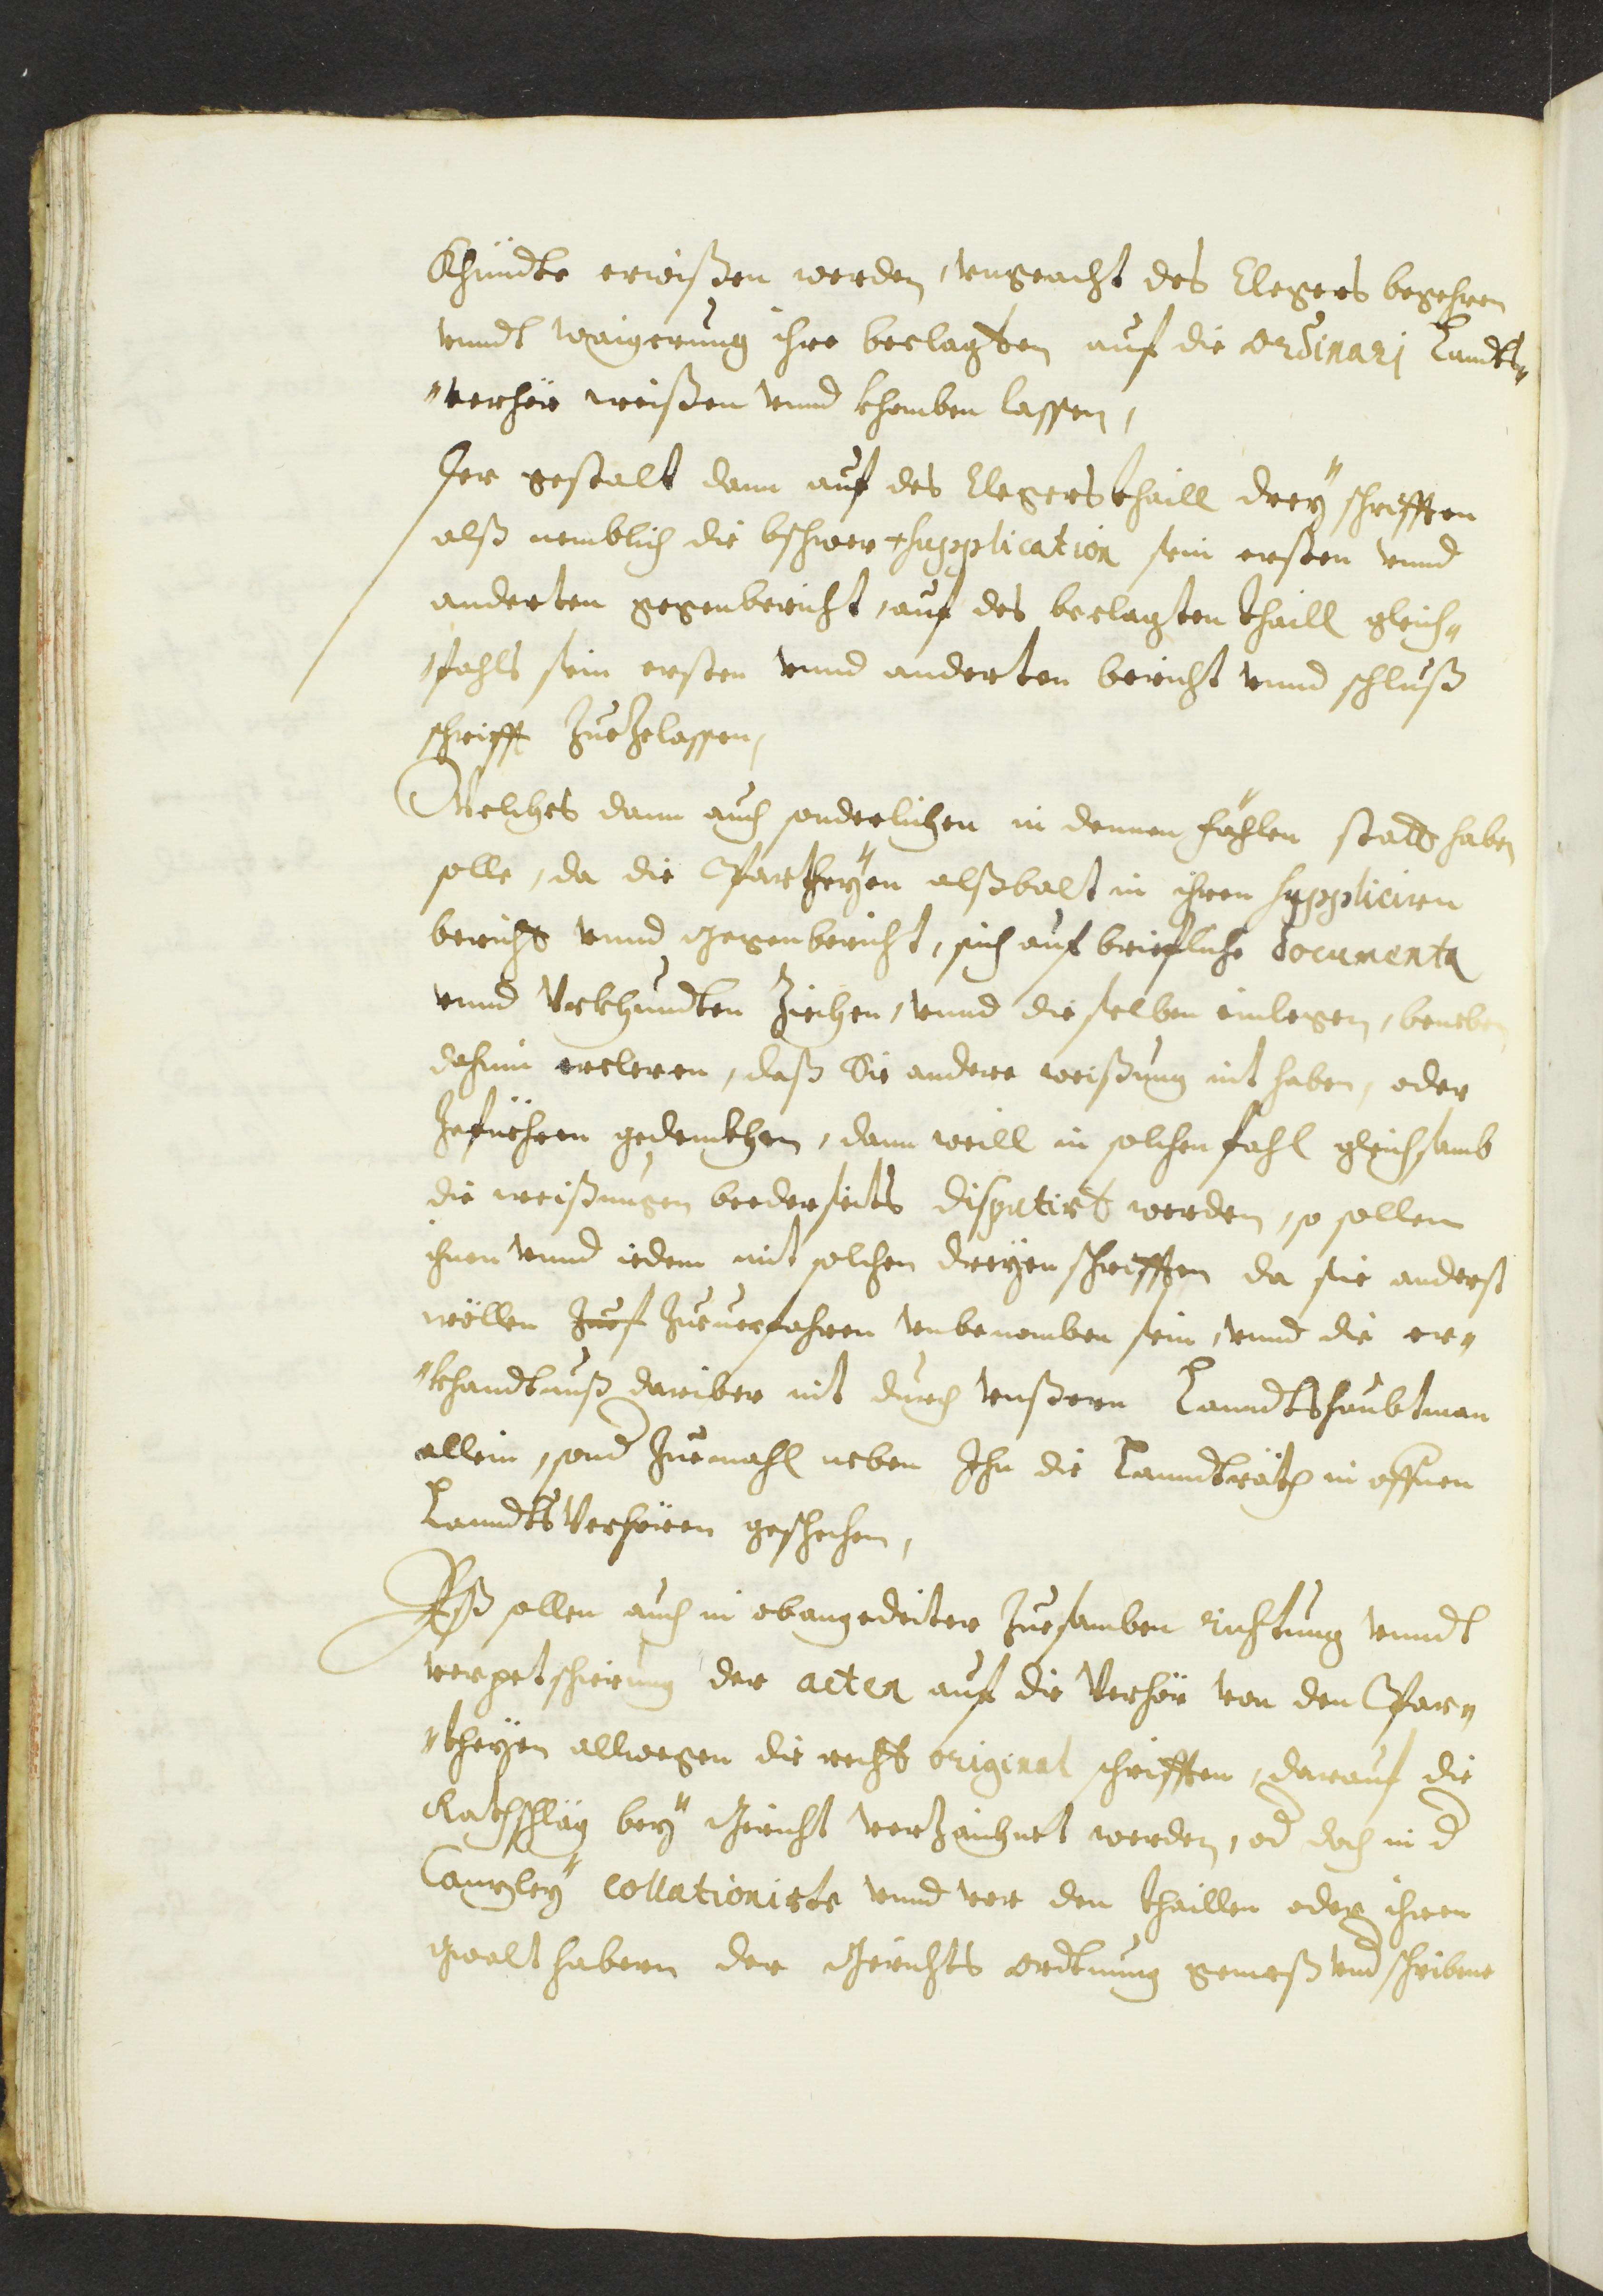 Khündte erwißen werden, vngeacht des Clegers begehren
vnndt waigerung ihre beclagten auf die ordinari Landts„
„verhör weißen vnnd khomben lassen,
Der gestalt dann auf des Clegers thaill dreÿ schrifften
alß nemblich die bschwer supplication sein ersten vnnd
anderten gegenbericht, auf des beclagten thaill gleich„
„fahls sein ersten vnnd anderten bericht vnnd schluß
schrifft Zuezelassen,
Welches dann auch sonderlichen in dennen fählen statt haben
solle, da die Partheÿen alßbalt in ihren suppliciren
bericht vnnd gegenbericht, sich auf briefliche documenta
vnnd Vrkhundten Ziechen, vnnd dieselben einlegen, beneben
dahin ercleren, daß Sie andere weißung nit haben, oder
Zefüehren gedenkhen, dann weill in solchen fahl gleichsamb
die weißungen beederseits disputirt werden, so sollen
ihnen vnnd iedem mit solchen dreÿen schrifften da sie anderst
wöllen Zuef Zueuerfahren vnbenomben sein, vnnd die er„
„khandtnuß dariber nit durch vnßern Lanndtshaubtman
allein, sond Zuemahl neben Ihn die Lanndträth in offnen
Lanndts Verhören geschechen,
Eß sollen auch in obangedeiter Zuesamben richtung vnndt
verpetschierung der acten auf die Verhör von den Par„
„theÿen allwegen die recht original schrifften, darauf die
Rathschläg beÿ Gericht verZaichnet werden, od doch in d
Canzleÿ collationirte vnnd vor den thaillen oder ihren
gwalthabern der Gerichts ordtnung gemeß vnd schribene